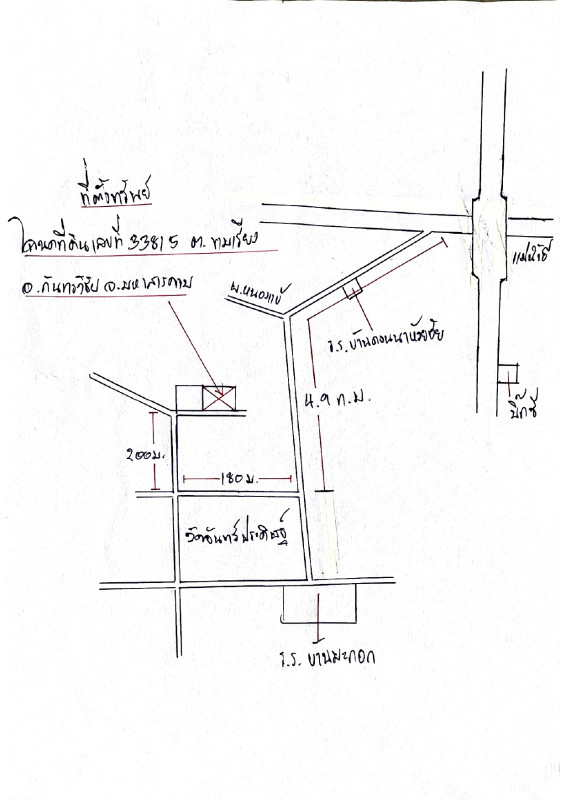 ที่ตั้งทรัพย์
โฉนดที่ดินเลขที่ 33815 ต. ขามเรียง
อ. กันทรวิชัย จ. มหาสารคาม
บ. หนองแข้
แม่ใช้อี
ร.ร. บ้านดอนนา
4.9 ก.ม.
บิ๊กซี
200ม.
180 ม.
วัดอินทร์ประดิษฐ์
ร.ร. บ้านมะกอก